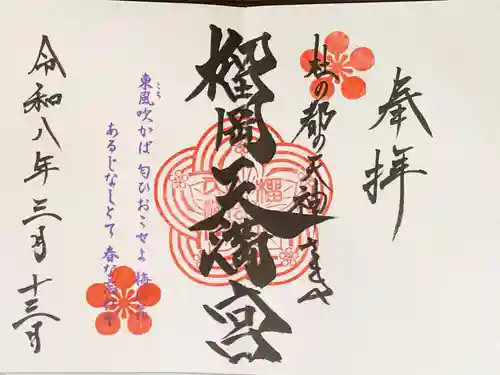 奉拝
杜の都の天神さま
榴岡天満宮
東風吹かば 匂ひおこせよ 梅の花
こち
あるじなしとて 春な忘れそ
令和八年三月十三日